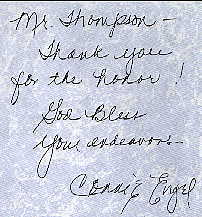 Mr. Thompson -
Thank you
for the honor !
God Bless
Your endeavors -
Connie Engel